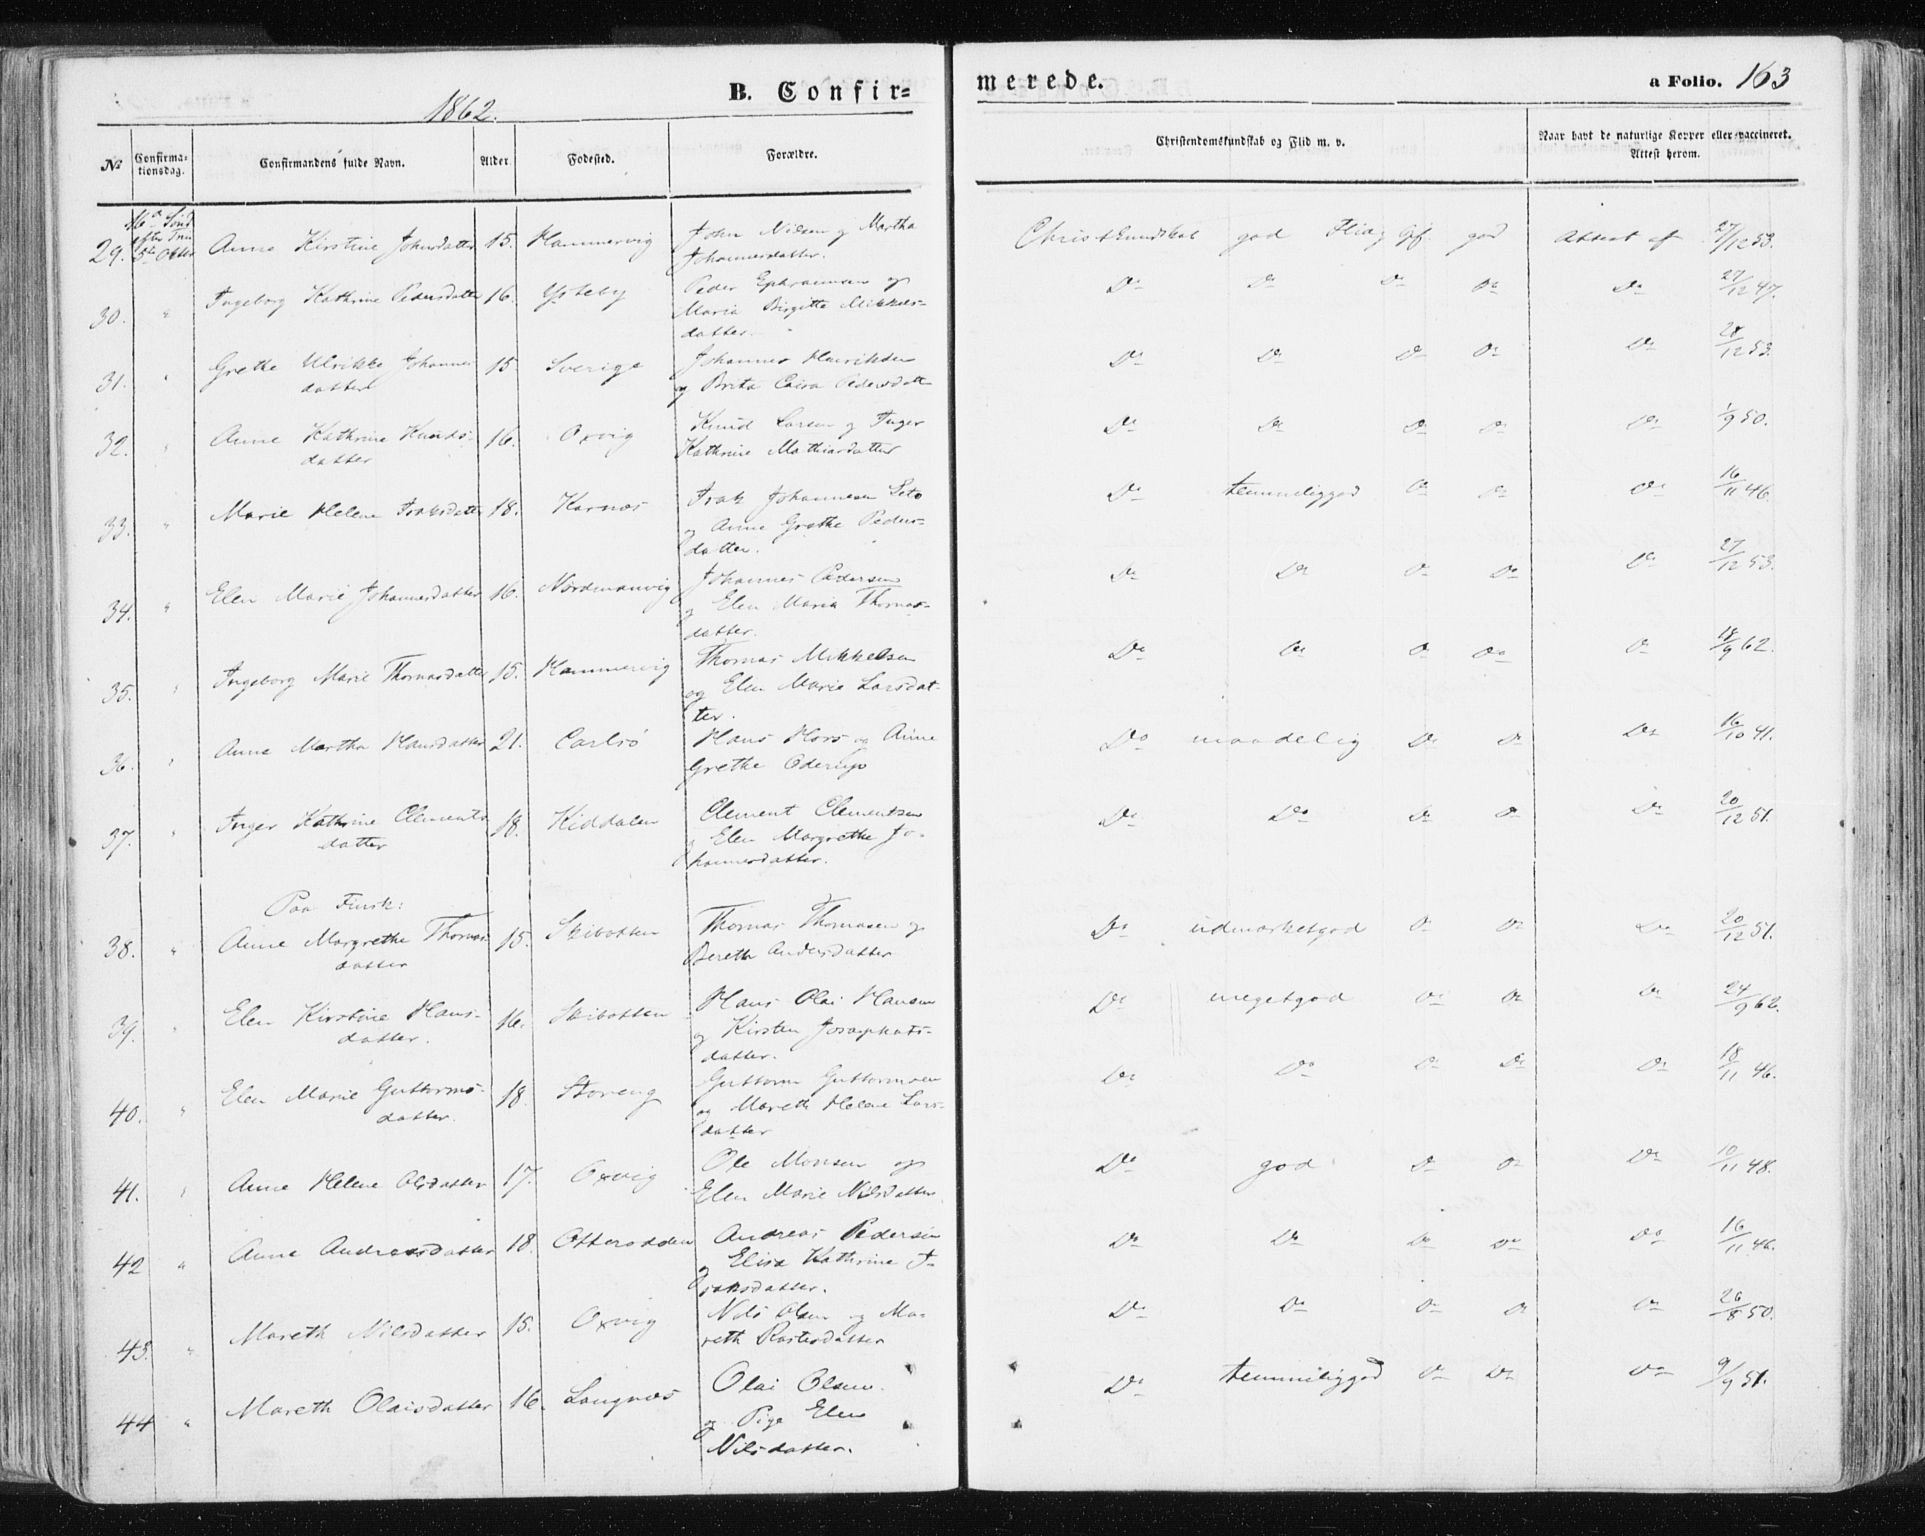 1862.
B. Confir=
merede.
a Folio. 163
No
Confirma-
tionsdag.
Confirmandens fulde Navn.
Alder.
Fødested.
Forældre.
Christendomskundskab og Flid m. v.
Naar havt de naturlige Kopper eller vaccineret.
Attest herom.
16de Sönd
efter Trin
5te Octbr
29. Anne Kirstine Johnsdatter 15. Hammervig John Nilsen og Martha
Johannesdatter.
Christkundskab god Flid og god Attest af 27/12 53.
30. " Ingeborg Kathrine Pedersdatter 16. Ysteby Peder Ephraimsen og
Maria Birgitte Mikkels-
datter.
Do Do Do Do Do 27/12 47.
31. " Grethe Ulrikke Johannes 15. Sverige Johannes Henriksen
datter og Brita Caisa Pedersdatt
Do Do Do Do Do 28/12 53.
32. " Anne Kathrine Knuds- 16. Oxvig Knud Larsen og Inger
datter Kathrine Mathiasdatter
Do Do Do Do Do 1/9 50.
33. " Marie Helene Isaksdatter 18. Karnæs Isak Johannesen
og Anne Grethe Peders-
datter.
Do temmeliggod Do Do Do 16/11 46.
34. " Elen Marie Johannesdatter 16. Nordmanvig Johannes Pedersen
og Elen Maria Thomas-
datter.
Do Do Do Do Do 27/12 53.
35. " Ingeborg Marie Thomasdatter 15. Hammervig Thomas Mikkelsen
og Elen Marie Larsdat-
ter.
Do Do Do Do Do 18/9 62.
36. " Anne Martha Hansdatter 21. Carlsö Hans Hors og Anne
Grethe
Do maadelig Do Do Do 16/10 41.
37. " Inger Kathrine Clements 18. Kiddalen Clement Clementsen
datter og Elen Margrethe Jo-
hannesdatter.
Do Do Do Do Do 20/12 51.
Paa Finsk:
38. " Anne Margrethe Thomas- 15. Skibotten Thomas Thomasen og
datter Bereth Andersdatter
Do udmærketgod Do Do Do 20/12 51.
39. " Elen Kirstine Hans- 16. Skibotten Hans Olai Hansen
datter. og Kirsten Josephats-
datter.
Do megetgod Do Do Do 24/9 62.
40. " Elen Marie Guttorms- 18. Storeng Guttorm Guttormsen
datter. og Mareth Helene Lars-
datter
Do Do Do Do Do 18/11 46.
41. " Anne Helene Olsdatter 17. Oxvig Ole Monsen og
Elen Marie Nilsdatter.
Do god Do Do Do 10/11 48.
42 " Anne Andreasdatter 18. Otterodden Andreas Pedersen
og Elisa Kathrine I-
saksdatter.
Do Do Do Do Do 16/11 46.
43. " Mareth Nilsdatter 15. Oxvig Nils Olsen og Ma-
reth
Do Do Do Do Do 26/8 50.
44 " Mareth Olaisdatter 16. Langnæs Olai Olsen.
og Pige Elen
Nilsdatter.
Do temmeliggod Do Do Do 9/9 51.